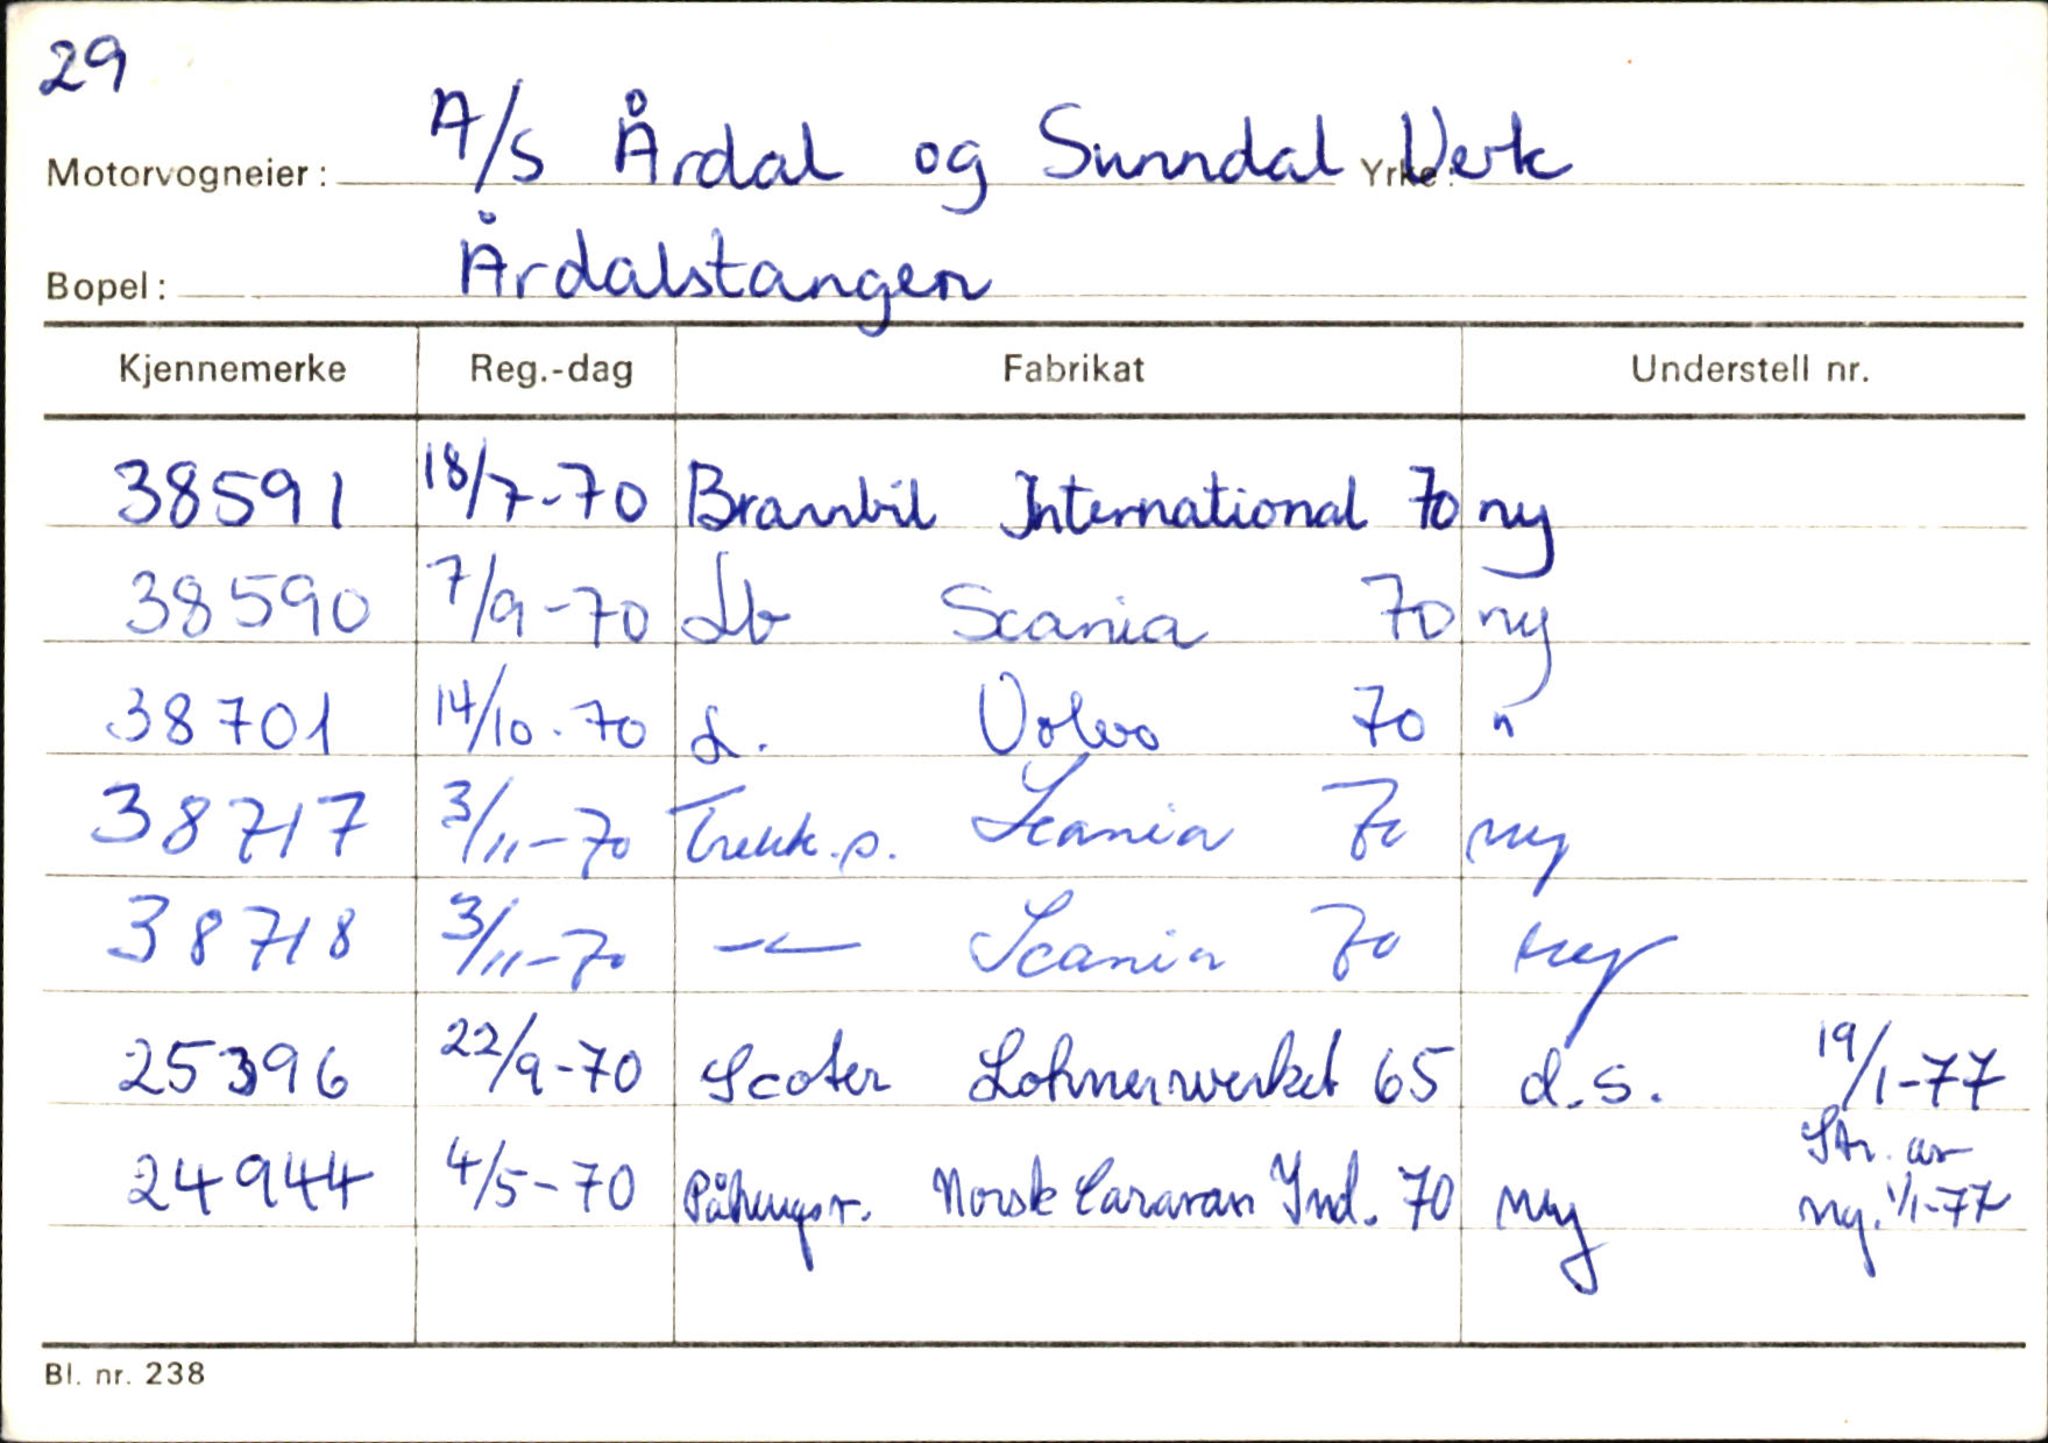 29
Motorvogneier: A/S Årdal og Sunndal Verk Yrke:
Bopel: Årdalstangen
Kjennemerke Reg.-dag Fabrikat Understell nr.
38591 18/7-70 Brannbil International 70 ny
38590 7/9-70 Lb Scania 70 ny
38701 14/10-70 L. Volvo 70 "
38717 3/11-70 Trekk.v. Scania 70 ny
38718 3/11-70 — Scania 70 ny
25396 22/9-70 Scoter Lohnerwerket 65 d.s. 19/1-77
24944 4/5-70 Påhengsv. Norsk Caravan Ind. 70 ny Str. av
ng. 1/1-77
Bl. nr. 238